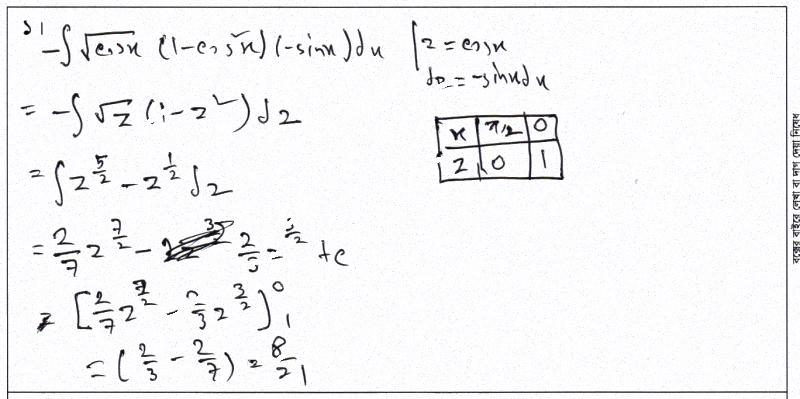 ১।
-∫√cosx (1-cos²x) (-sinx)dx | z = cosx
dz = -sinx dx
= -∫√z (1-z²) dz
x | π/2 | 0
z | 0 | 1
= ∫ z^{5/2} - z^{1/2} dz
= 2/7 z^{7/2} - 2/3 z^{3/2} + c
= [2/7 z^{7/2} - 2/3 z^{3/2}]₁⁰
= (2/3 - 2/7) = 8/21
বক্সের বাইরে লেখা বা দাগ দেয়া নিষেধ